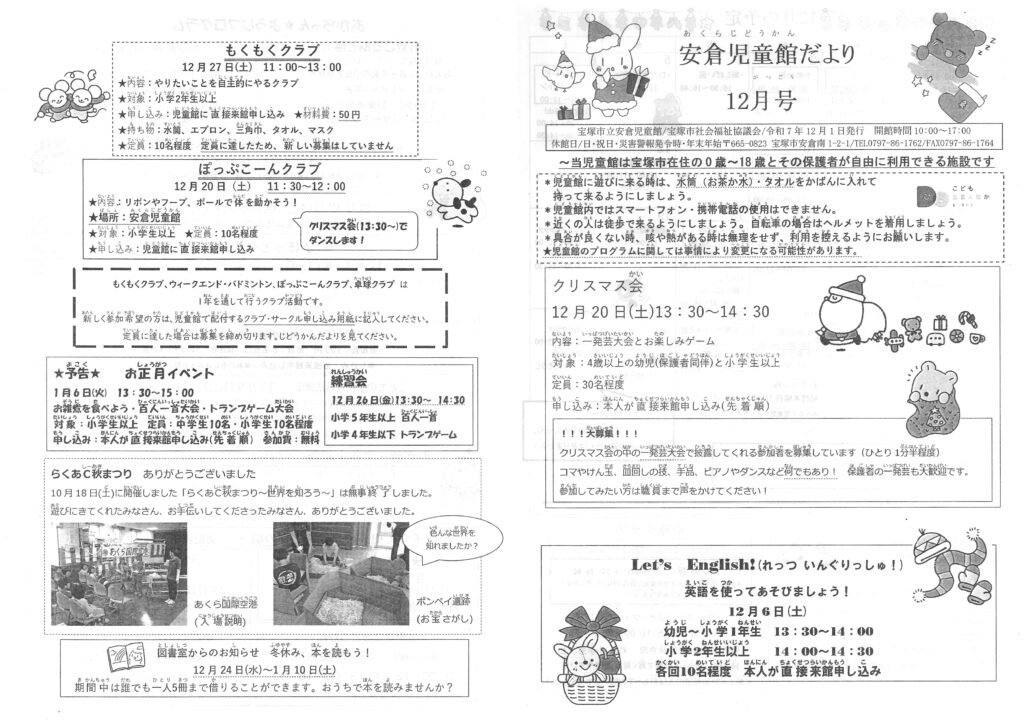 もくもくクラブ
12月27日(土) 11:00～13:00
★内容：やりたいことを自主的にやるクラブ
★対象：小学2年生以上
★申し込み：児童館に直接来館申し込み ★材料費：50円
★持ち物：水筒、エプロン、三角巾、タオル、マスク
★定員：10名程度 定員に達したため、新しい募集はしていません
ぽっぷこーんクラブ
12月20日(土) 11:30～12:00
★内容：リボンやフープ、ボールで体を動かそう！
★場所：安倉児童館
★対象：小学生以上 ★定員：10名程度
★申し込み：児童館に直接来館申し込み
クリスマス会(13:30～)で
ダンスします！
もくもくクラブ、ウィークエンド・バドミントン、ぽっぷこーんクラブ、卓球クラブ は
1年を通して行うクラブ活動です。
新しく参加希望の方は、児童館で配付するクラブ・サークル申し込み用紙に記入してください。
定員に達した場合は募集を締め切ります。じどうかんだよりを見てください。
★予告★ お正月イベント
1月6日(火) 13:30～15:00
お雑煮を食べよう・百人一首大会・トランプゲーム大会
対象：小学生以上 定員：中学生10名・小学生10名程度
申し込み：本人が直接来館申し込み(先着順) 参加費：無料
練習会
12月26日(金)13:30～ 14:30
小学5年生以上 百人一首
小学4年生以下 トランプゲーム
らくあC秋まつり ありがとうございました
10月18日(土)に開催しました「らくあC秋まつり～世界を知ろう～」は無事終了しました。
遊びにきてくれたみなさん、お手伝いしてくださったみなさん、ありがとうございました。
色んな世界を
知れましたか？
あくら国際空港
(入場説明)
ポンペイ遺跡
(お宝さがし)
図書室からのお知らせ 冬休み、本を読もう！
12月24日(水)～1月10日(土)
期間中は誰でも一人5冊まで借りることができます。おうちで本を読みませんか？
あくらじどうかん
安倉児童館だより
12月号
宝塚市立安倉児童館/宝塚市社会福祉協議会/令和7年12月1日発行 開館時間10:00～17:00
休館日/日・祝日・災害警報発令時・年末年始〒665-0823 宝塚市安倉南1-2-1/TEL0797-86-1762/FAX0797-86-1764
～当児童館は宝塚市在住の0歳～18歳とその保護者が自由に利用できる施設です
＊児童館に遊びに来る時は、水筒(お茶か水)・タオルをかばんに入れて
持って来るようにしましょう。
＊児童館内ではスマートフォン・携帯電話の使用はできません。
＊近くの人は徒歩で来るようにしましょう。自転車の場合はヘルメットを着用しましょう。
＊具合が良くない時、咳や熱がある時は無理をせず、利用を控えるようにお願いします。
★児童館のプログラムに関しては事情により変更になる可能性があります。
クリスマス会
12月20日(土)13：30～14：30
内容：一発芸大会とお楽しみゲーム
対象：4歳以上の幼児(保護者同伴)と小学生以上
定員：30名程度
申し込み：本人が直接来館申し込み(先着順)
！！！大募集！！！
クリスマス会の中の一発芸大会で披露してくれる参加者を募集しています(ひとり1分半程度)
コマやけん玉、皿回しの技、手品、ピアノやダンスなど何でもあり！ 保護者の一発芸も大歓迎です。
参加してみたい方は職員まで声をかけてください！
Let's English!(れっつ いんぐりっしゅ！)
英語を使ってあそびましょう！
12月6日(土)
幼児～小学1年生 13：30～14：00
小学2年生以上 14：00～14：30
各回10名程度 本人が直接来館申し込み